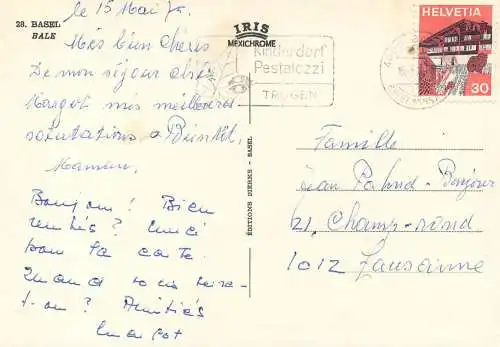 28. BASEL
BALE
le 15 Mai 75.
Mes bien chères
De mon séjour chez
Margot mes meilleures
salutations à Bientôt.
Maman.
Bonjour! Bien
rentrés? Merci
pour la carte.
Quand vous reverra-
t-on? Amitiés
Margot
IRIS
MEXICHROME
Kinderdorf
Pestalozzi
TROGEN
HELVETIA
30
EDITIONS DIERKS - BASEL
Famille
Jean Pahud-Bonjour
21, Champ-rond
1012 Lausanne